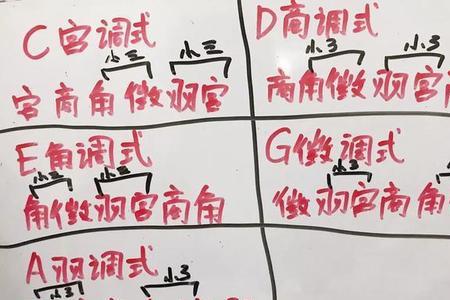 C宫调式
小三 小三
宫商角微羽宫
D商调式
小3 小3
商角微羽宫商
E角调式
小三 小三
角微羽宫商角
G微调式
小3
微羽宫商角
A羽调式
小3 小3